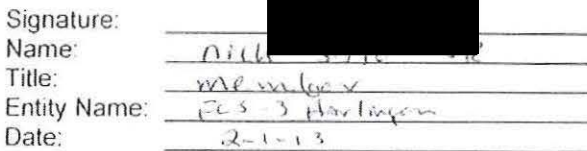 Signature:
Name: Nick
Title: Member
Entity Name: FCS-3 Harlingen
Date: 2-1-13